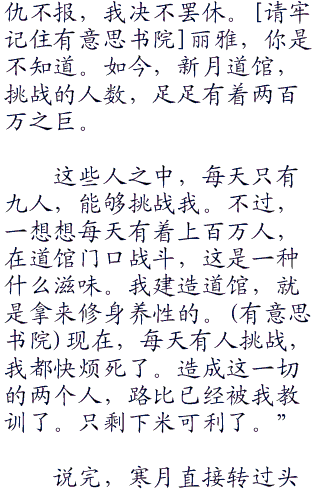 仇不报，我决不罢休。[请牢
记住有意思书院]丽雅，你是
不知道。如今，新月道馆，
挑战的人数，足足有着两百
万之巨。
这些人之中，每天只有
九人，能够挑战我。不过，
一想想每天有着上百万人，
在道馆门口战斗，这是一种
什么滋味。我建造道馆，就
是拿来修身养性的。(有意思
书院)现在，每天有人挑战，
我都快烦死了。造成这一切
的两个人，路比已经被我教
训了。只剩下米可利了。”
说完，寒月直接转过头